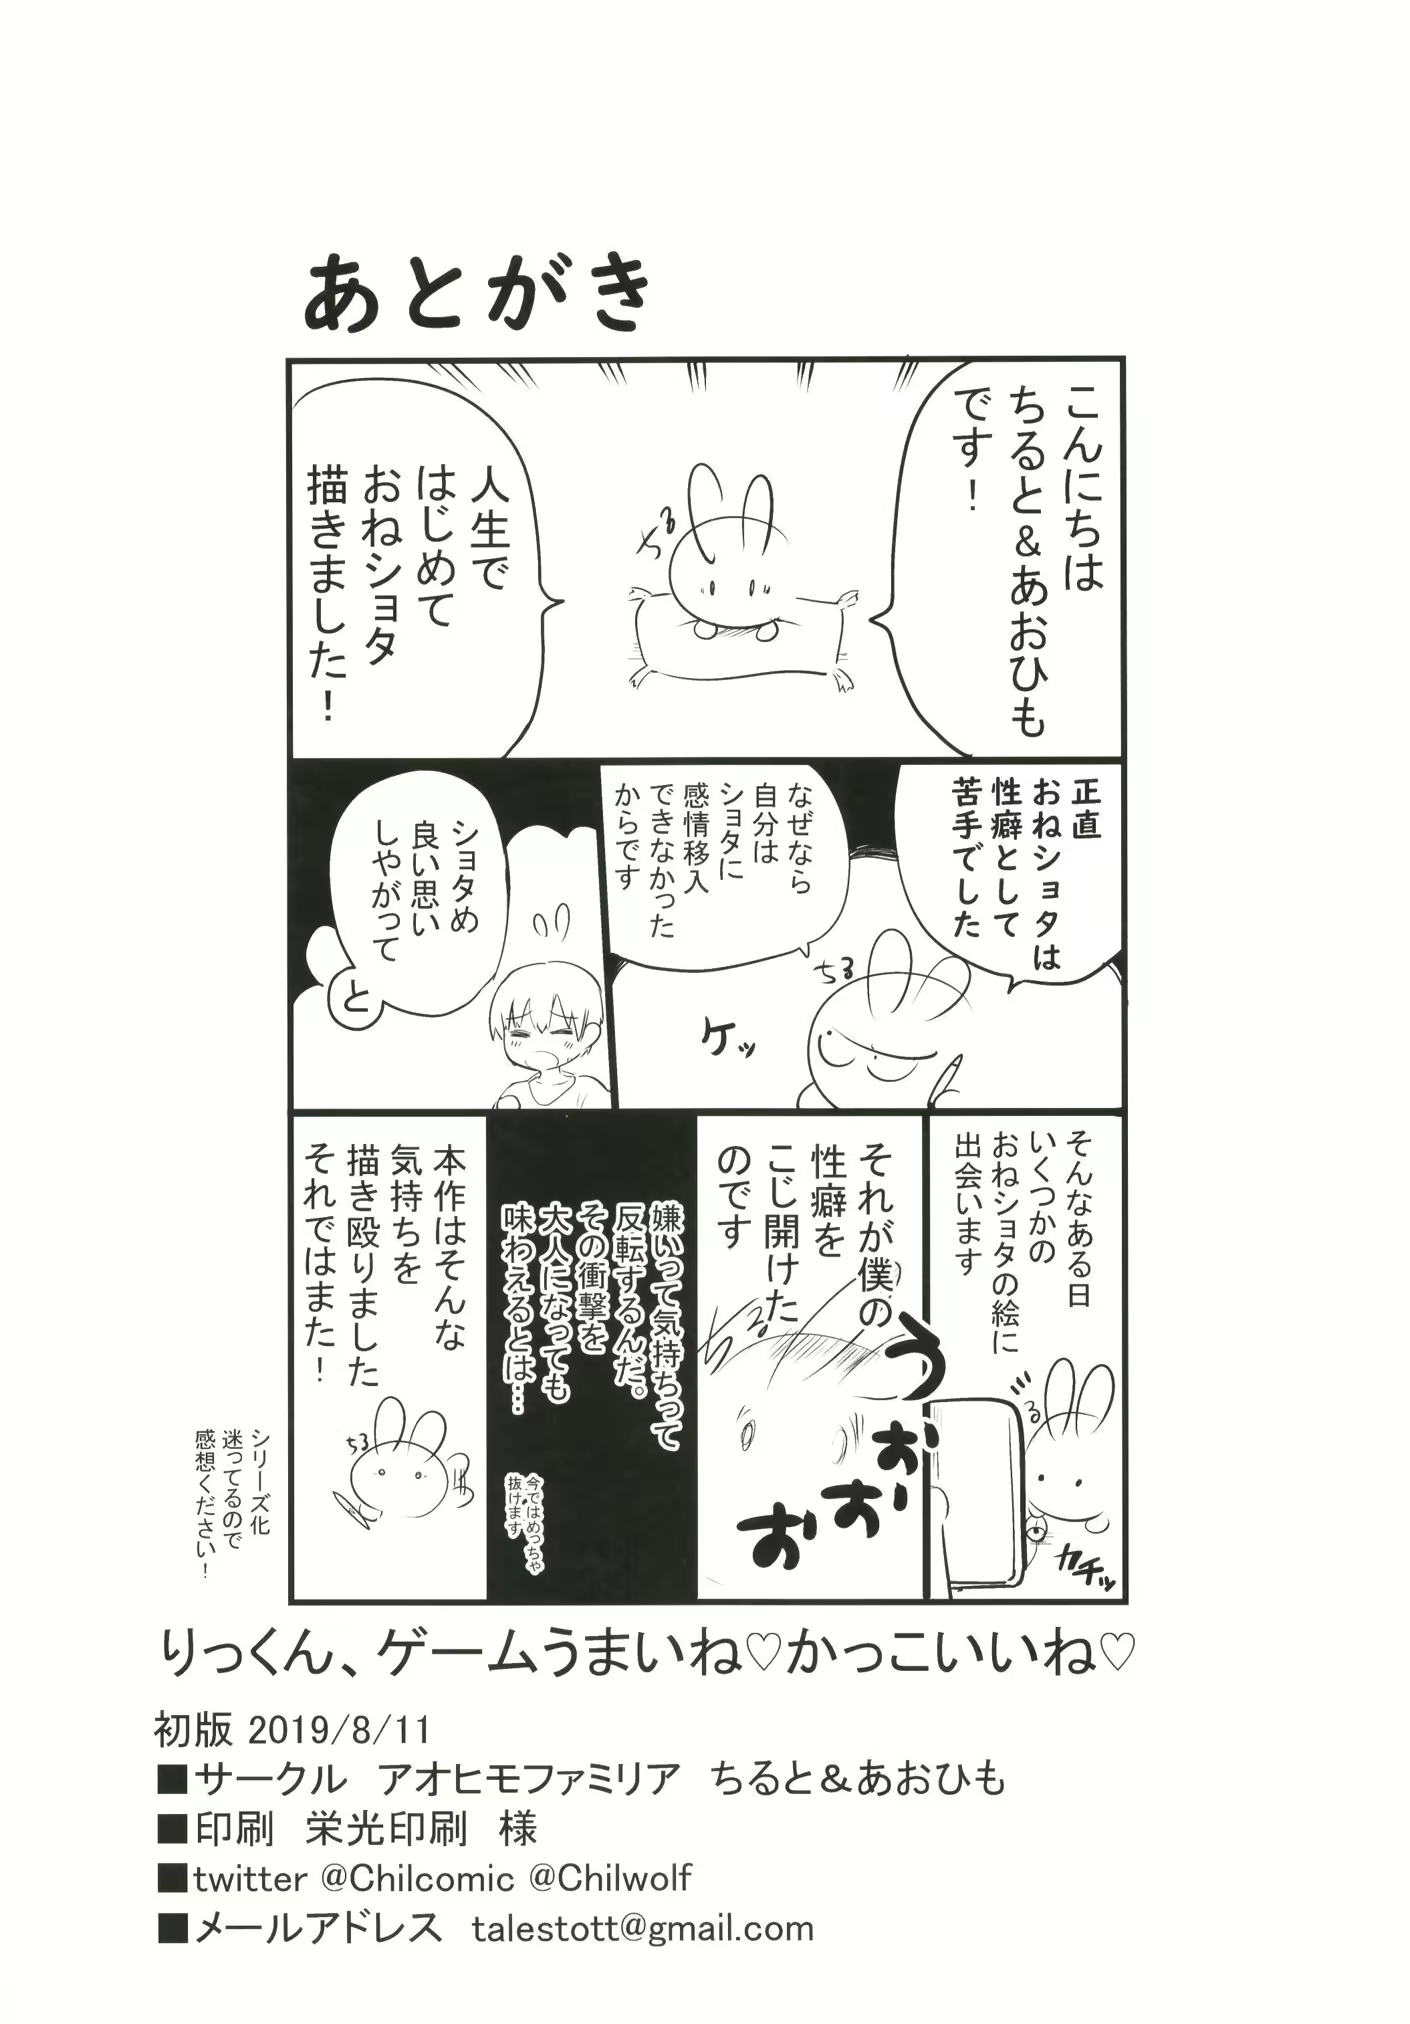 あとがき
こんにちは
ちると&あおひも
です！
ちる
人生で
はじめて
おねショタ
描きました！
正直
おねショタは
性癖として
苦手でした
なぜなら
自分は
ショタに
感情移入
できなかった
からです
ちる
ケッ
ショタめ
良い思い
しやがって
と
そんなある日
いくつかの
おねショタの絵に
出会います
ちる
カチッ
それが僕の
性癖を
こじ開けた
のです
ちる
うおおお
嫌いって気持ちって
反転するんだ。
その衝撃を
大人になっても
味わえるとは…
今ではめっちゃ
抜けます
本作はそんな
気持ちを
描き殴りました
それではまた！
ちる
シリーズ化
迷ってるので
感想ください！
りっくん、ゲームうまいね♡かっこいいね♡
初版 2019/8/11
■サークル　アオヒモファミリア　ちると＆あおひも
■印刷　栄光印刷　様
■twitter @Chilcomic @Chilwolf
■メールアドレス　talestott@gmail.com